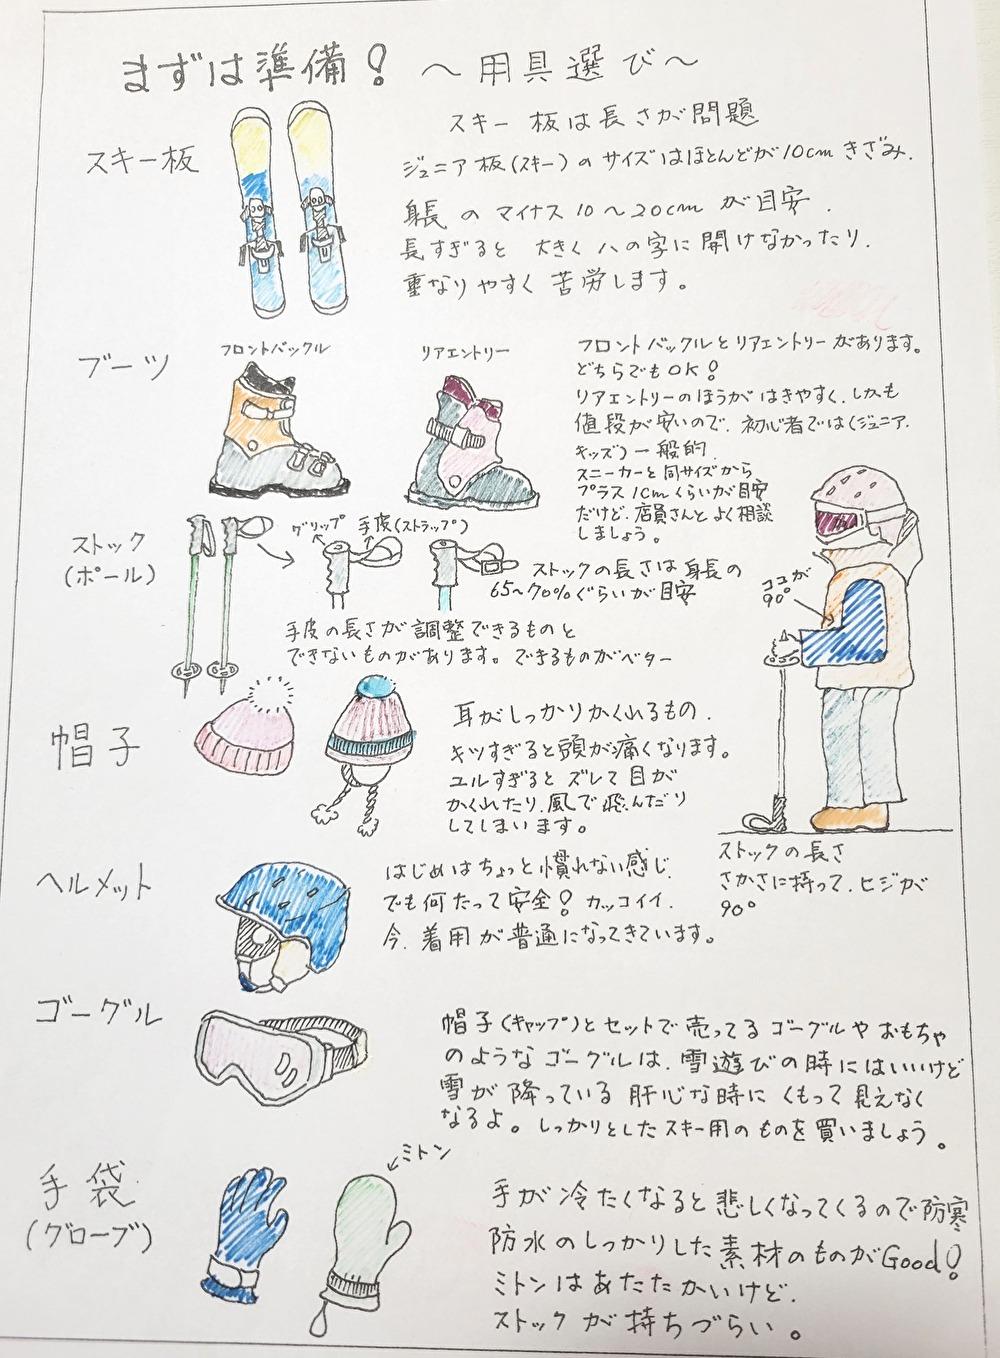 まずは準備! ～用具選び～
スキー板
スキー板は長さが問題
ジュニア板(スキー)のサイズはほとんどが10cmきざみ.
身長のマイナス10～20cmが目安.
長すぎると大きくハの字に開けなかったり.
重なりやすく苦労します。
ブーツ
フロントバックル
リアエントリー
フロントバックルとリアエントリーがあります。
どちらでもOK!
リアエントリーのほうがはきやすく.しかも
値段が安いので.初心者では(ジュニア.
キッズ)一般的.
スニーカーと同サイズから
プラス1cmくらいが目安
だけど.店員さんとよく相談
しましょう。
ストック
(ポール)
グリップ
手皮(ストラップ)
ストックの長さは身長の
65～70%ぐらいが目安
手皮の長さが調整できるものと
できないものがあります。できるものがベター
ココが
90°
ストックの長さ
さかさに持って.ヒジが
90°
帽子
耳がしっかりかくれるもの.
キツすぎると頭が痛くなります。
ユルすぎるとズレて目が
かくれたり.風で飛んだり
してしまいます。
ヘルメット
はじめはちょっと慣れない感じ.
でも何たって安全!カッコイイ.
今.着用が普通になってきています。
ゴーグル
帽子(キャップ)とセットで売ってるゴーグルやおもちゃ
のようなゴーグルは.雪遊びの時にはいいけど
雪が降っている肝心な時にくもって見えなく
なるよ。しっかりとしたスキー用のものを買いましょう。
手袋
(グローブ)
ミトン
手が冷たくなると悲しくなってくるので防寒
防水のしっかりした素材のものがGood!
ミトンはあたたかいけど.
ストックが持ちづらい。